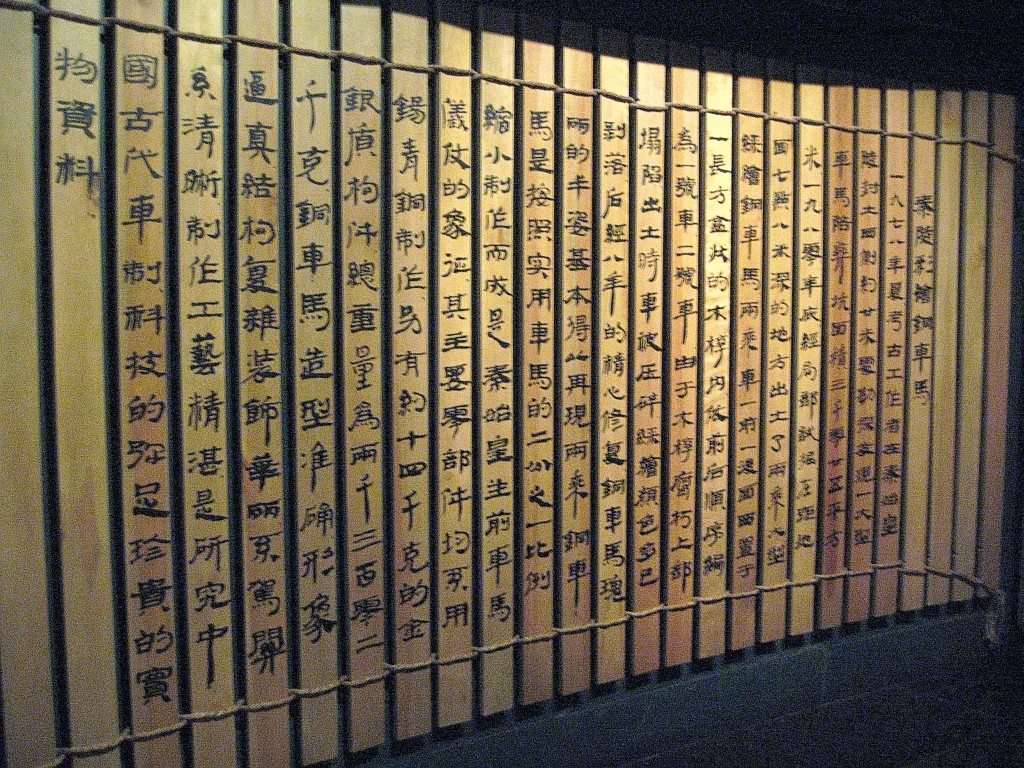 秦陵彩繪銅車馬
一九七八年夏考古工作者在秦始皇
陵封土西側約廿米處勘探發現一大型
車馬陪葬坑面積三千零廿五平方
米一九八零年底經局部試掘在距地
面七點八米深的地方出土了兩乘大型
綵繪銅車馬兩乘車一前一後面西置于
一長方盒狀的木椁内依前后順序編
為一號車二號車由于木椁腐朽上部
塌陷出土時車被压碎綵繪顏色多已
剥落后經八年的精心修复銅車馬瑰
丽的丰姿基本得以再現兩乘銅車
馬是按照实用車馬的二份之一比例
縮小制作而成是秦始皇生前車馬
儀仗的象征其主要零部件均系用
錫青銅制作另有約十四千克的金
銀質构件總重量為兩千三百零二
千克銅車馬造型准确形象
逼真結构复雜装飾華丽系駕關
系清晰制作工藝精湛是研究中
國古代車制科技的弥足珍貴的實
物資料